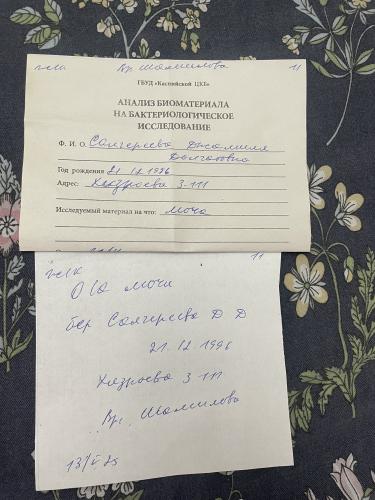 ж-ск Вр. Шамилова 11
ГБУД «Каспийской ЦКБ»
АНАЛИЗ БИОМАТЕРИАЛА
НА БАКТЕРИОЛОГИЧЕСКОЕ
ИССЛЕДОВАНИЕ
Ф. И. О. Салгереева Джамиля
Долгатовна
Год рождения 21 12 1996
Адрес: Хизроева 3-111
Исследуемый материал на что: моча
11
О/а мочи
бер Салгереева Д Д
21.12 1996
Хизроева 3 111
Вр. Шамилова